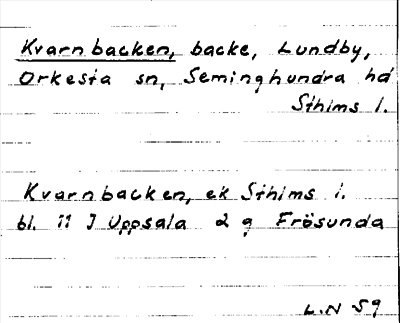 Kvarnbacken, backe, Lundby,
Orkesta sn, Seminghundra hd
Sthlms l.
Kvarnbacken, ek Sthlms l.
bl. 11 I Uppsala 2 g Frösunda
L.N 59